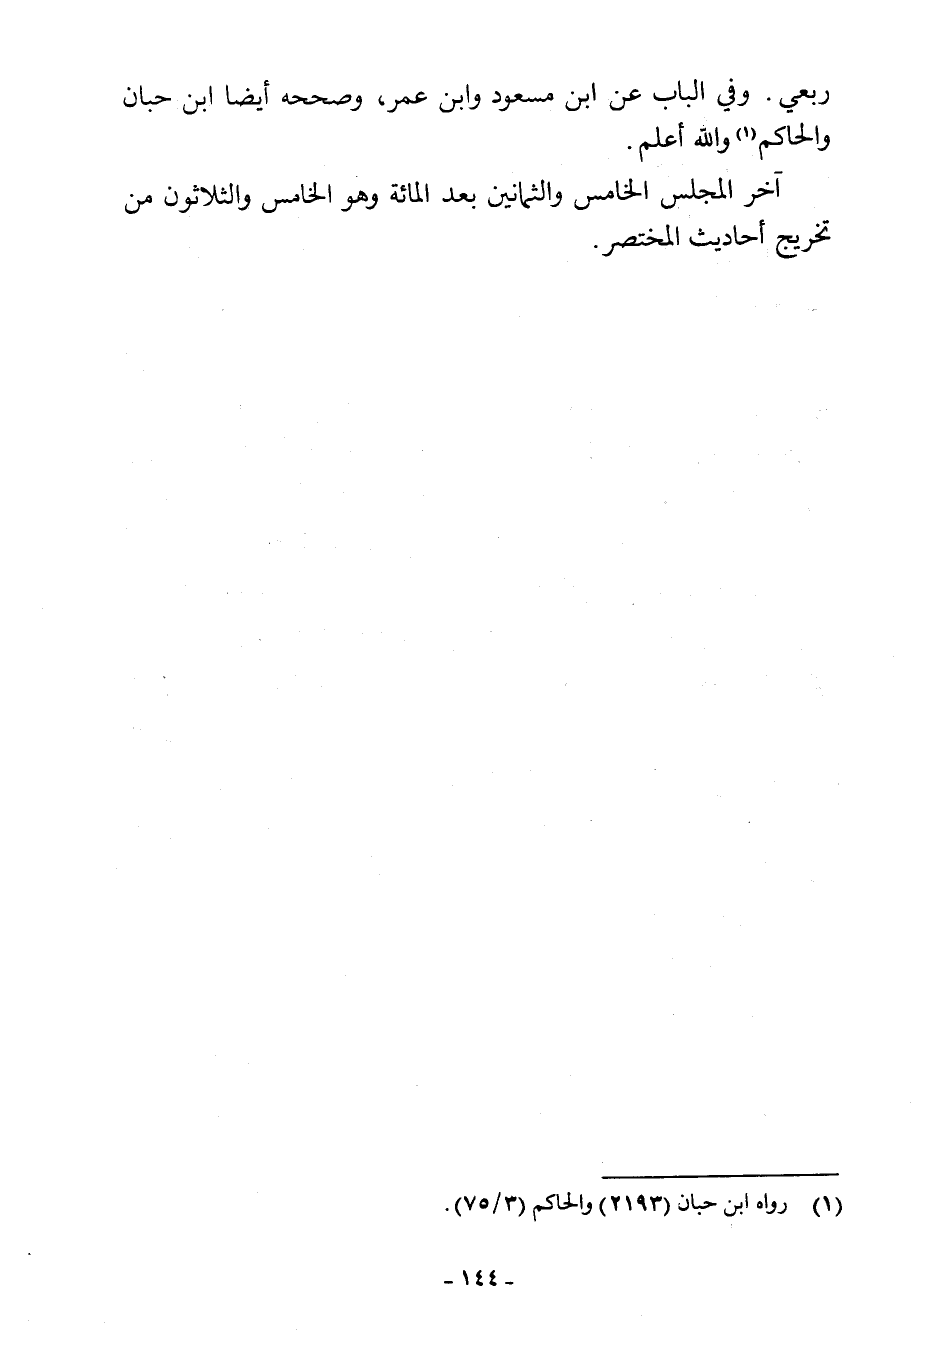 ربعي. وفي الباب عن ابن مسعود وابن عمر، وصححه أيضا ابن حبان
والحاكم(١) والله أعلم.
آخر المجلس الخامس والثمانين بعد المائة وهو الخامس والثلاثون من
تخريج أحاديث المختصر.
(١) رواه ابن حبان (٢١٩٣) والحاكم (٣/٧٥).
- ١٤٤ -